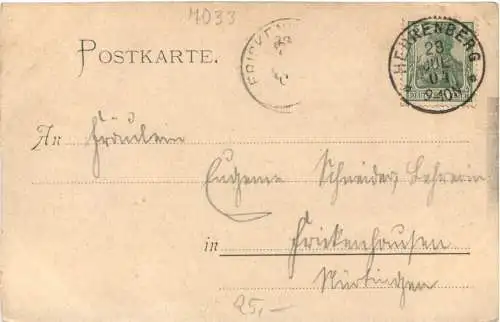 7033
POSTKARTE.
HERRENBERG
23
JUL
An Fräulein
Eugenie Schneider, Lehrerin
in Frickenhausen
Nürtingen
25,-